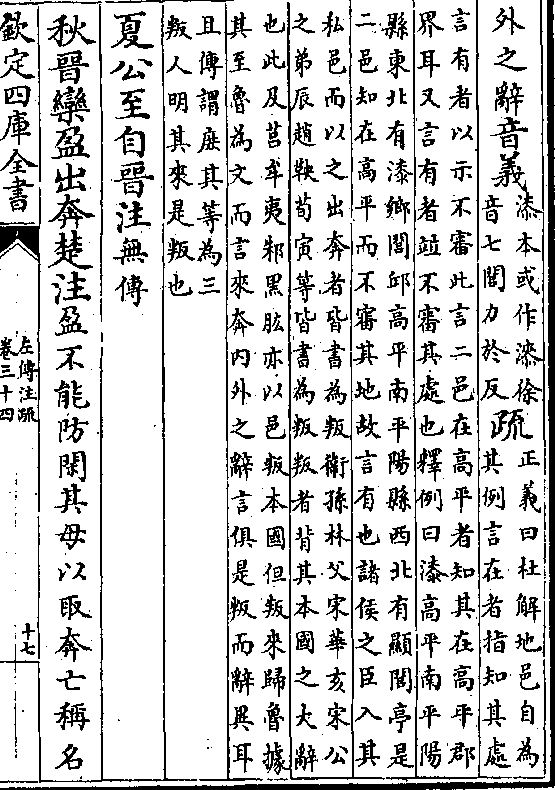 外之辭音義漆本或作漆徐
音七閭力於反疏正義曰杜解地邑自為
其例言在者指知其處
言有者以示不審此言二邑在高平者知其在高平郡
界耳又言有者竝不審其處也釋例曰漆高平南平陽
縣東北有漆鄉閭邱高平南平陽縣西北有顯閭亭是
二邑知在高平而不審其地故言有也諸侯之臣入其
私邑而以之出奔者皆書為叛衞孫林父宋華亥宋公
之弟辰趙鞅荀寅等皆書為叛叛者背其本國之大辭
也此及莒牟夷邾黑肱亦以邑叛本國但叛來歸魯據
其至魯為文而言來奔內外之辭言俱是叛而辭異耳
且傳謂庶其等為三
叛人明其來是叛也
夏公至自晉注無傳
秋晉欒盈出奔楚注盈不能防閑其母以取奔亡稱名
欽定四庫全書
左傳注疏
卷三十四
十七